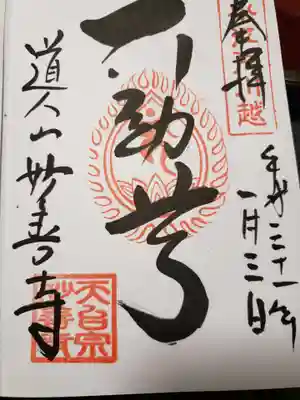 奉拝
平成三十一年
一月三日
不動尊
道人山妙善寺
天台宗
妙善寺